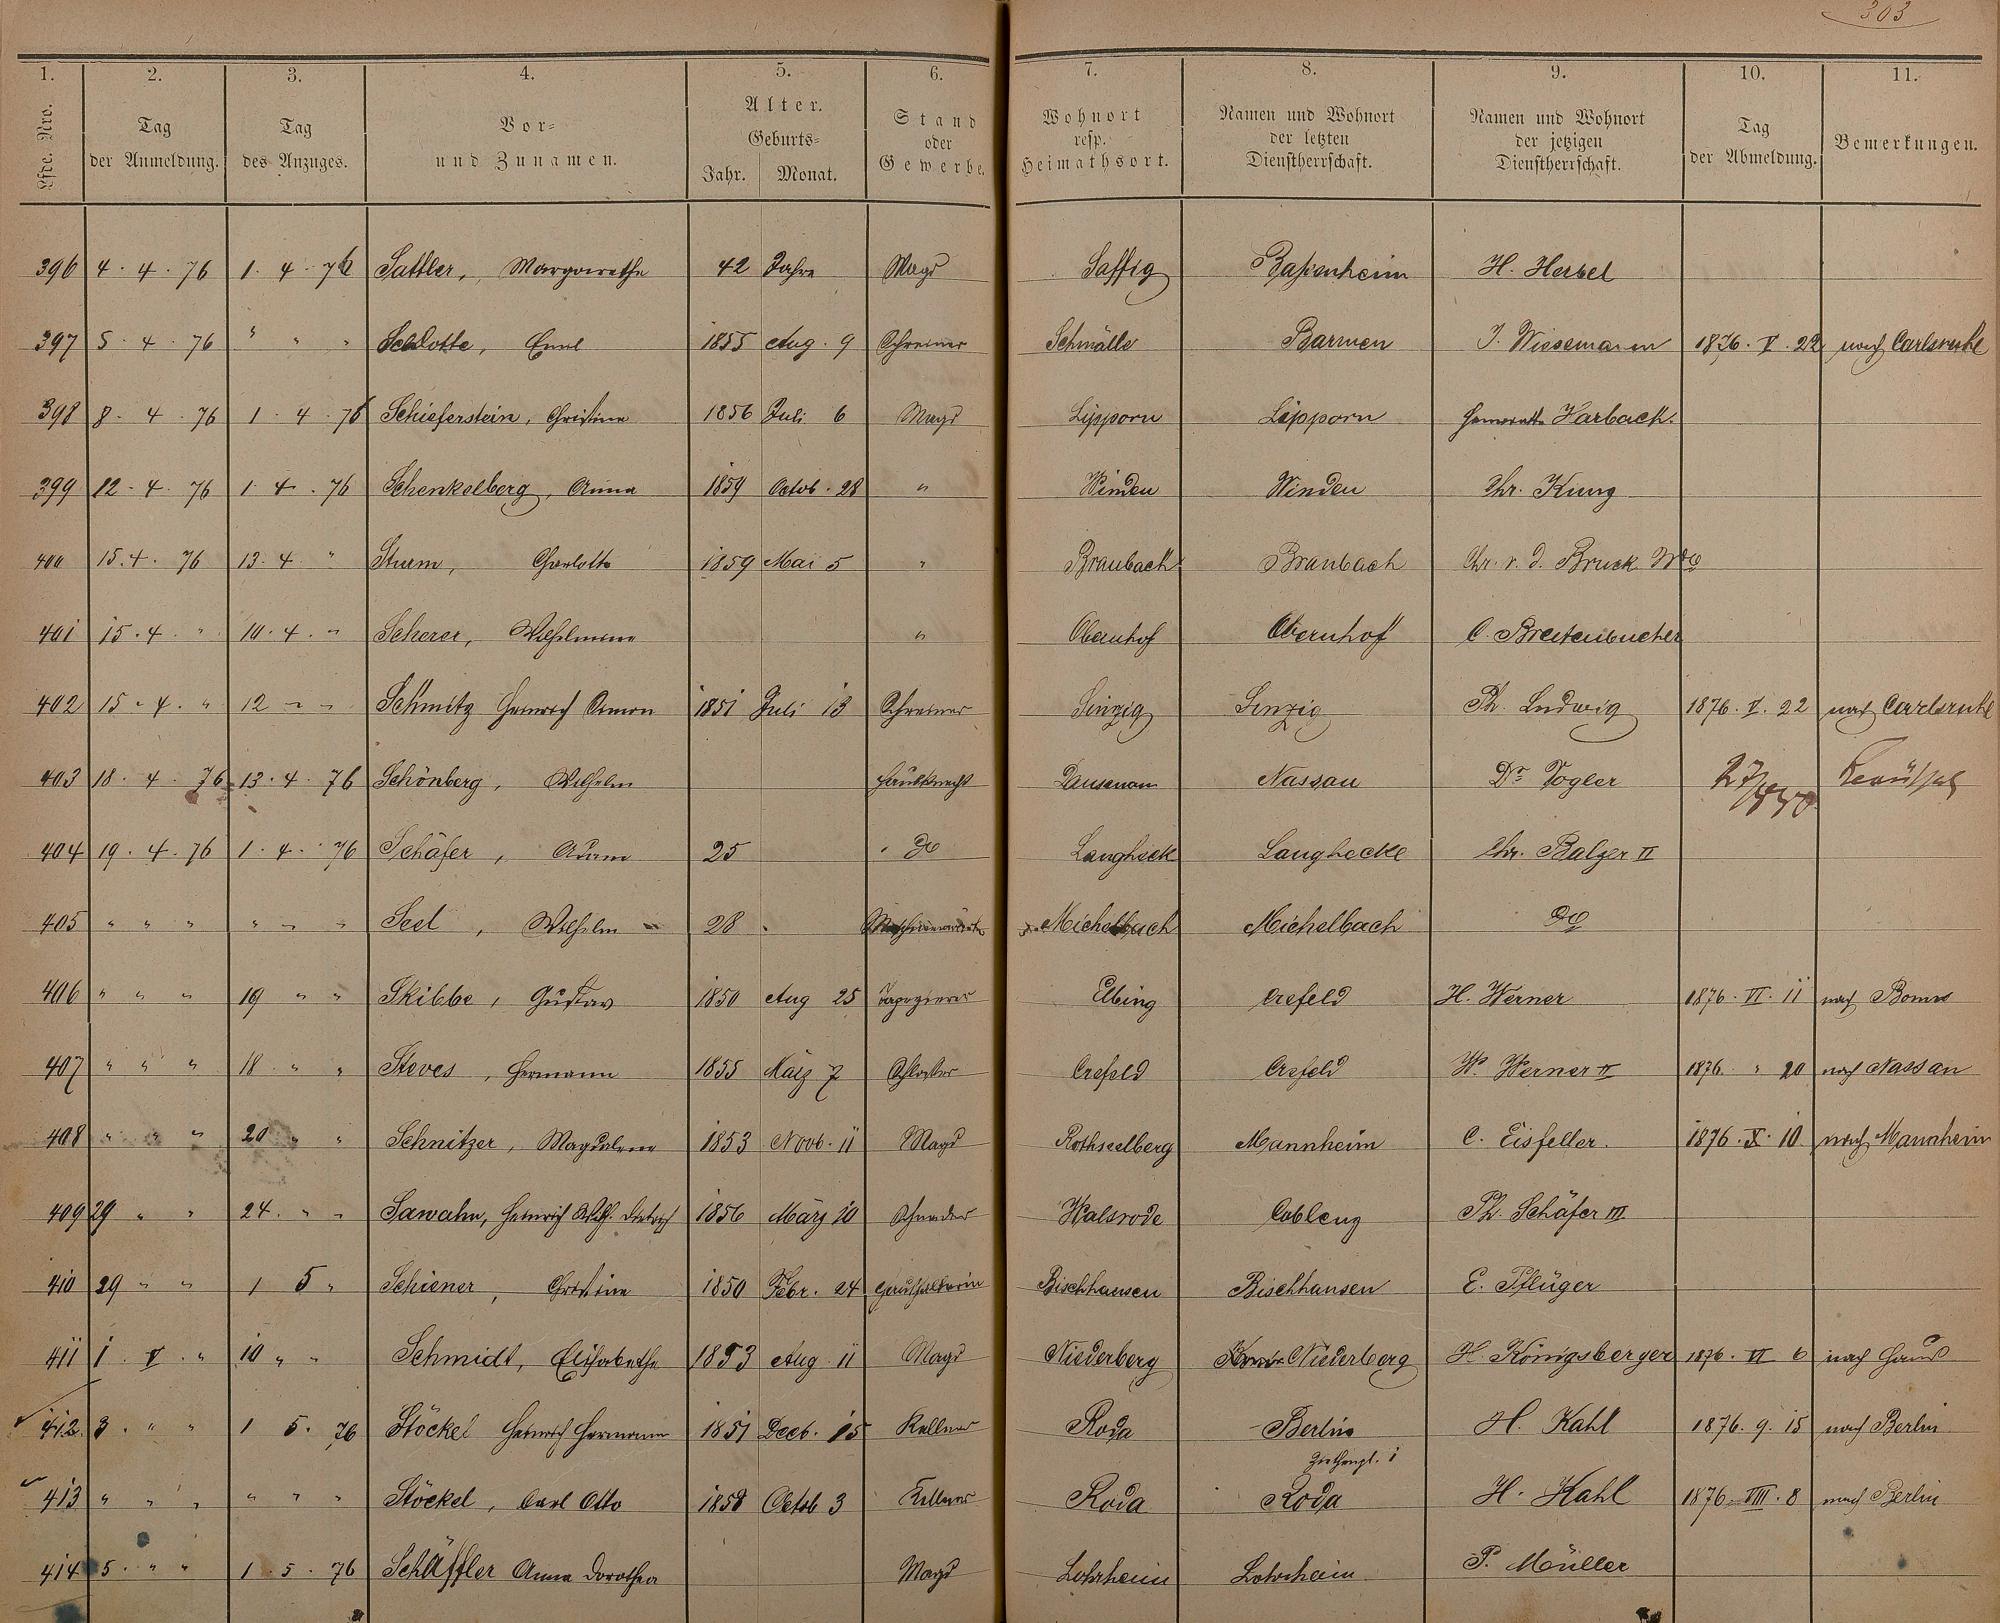 303
1. 2. 3. 4. 5. 6. 7. 8. 9. 10. 11.
Lfde. Nro. Tag der Anmeldung. Tag des Anzuges. Vor- und Zunamen. Alter. Geburts- Jahr. Monat. Stand oder Gewerbe. Wohnort resp. Heimathsort. Namen und Wohnort der letzten Dienstherrschaft. Namen und Wohnort der jetzigen Dienstherrschaft. Tag der Abmeldung. Bemerkungen.
396 4. 4. 76 1. 4. 76 Sattler, Margarethe 42 Jahre Magd Saffig Baßenheim H. Herbel
397 5. 4. 76 " " " Schlotte, Emil 1855 Aug. 9 Schreiner Schmälle Barmen J. Wiesemann 1876. V. 22 nach Carlsruhe
398 8. 4. 76 1. 4. 76 Schieferstein, Christine 1856 Juli 6 Magd Lipporn Lipporn Harbach.
399 12. 4. 76 1. 4. 76 Schenkelberg, Anna 1859 Octob. 28 " Winden Winden Chr. Kung
400 15. 4. 76 13. 4. " Sturm, Charlotte 1859 Mai 5 " Braubach Braubach Chr. v. d. Bruck Wwe
401 15. 4. " 10. 4. " Scherer, Wilhelmine " Obernhof Obernhof C. Breitenbucher
402 15. 4. " 12 " " Schmitz Heinrich Simon 1851 Juli 13 Schreiner Sinzig Sinzig Ph. Ludwig 1876. V. 22 nach Carlsruhe
403 18. 4. 76 13. 4. 76 Schönberg, Wilhelm Hausknecht Dausenau Nassau Dr Vogler 27/
404 19. 4. 76 1. 4. 76 Schäfer, Adam 25 " do Langheck Langhecke Chr. Balzer II
405 " " " " " " Seel, Wilhelm 28 " Michelbach Michelbach do
406 " " " 19 " " Skibbe, Gustav 1850 Aug 25 Tapezierer Elbing Crefeld H. Werner 1876. VI. 11 nach Bonn
407 " " " 18 " " Steves, Hermann 1855 März 7 Schlosser Crefeld Crefeld W. Werner II 1876. " 20 nach Nassau
408 " " " 20 " " Schnitzer, Magdalene 1853 Novb. 11 Magd Rothseelberg Mannheim C. Eisfeller. 1876. X. 10 nach Mannheim
409 29 " " 24. " " Sawahn, Heinrich Wilh. Dietrich 1856 März 20 Schneider Walsrode Coblenz Ph. Schäfer III
410 29 " " 1 5 " Schiener, Christine 1850 Febr. 24 Haushälterin Bischhausen Bischhausen E. Pflüger
411 1. V. " 10 " " Schmidt, Elisabethe 1853 Aug. 11 Magd Niederberg Niederberg H. Königsberger 1876. VI 6 nach Haus
412 3. " " 1 5. 76 Stöckel Heinrich Hermann 1851 Decb. 15 Kellner Roda Berlin H. Kahl 1876. 9. 15 nach Berlin
413 " " " " " " Stöckel, Carl Otto 1858 Octob 3 Kellner Roda Roda H. Kahl 1876. VIII. 8 nach Berlin
414 5. " " 1. 5. 76 Schäffler Anna Dorothea Magd Lohrheim Lohrheim P. Müller